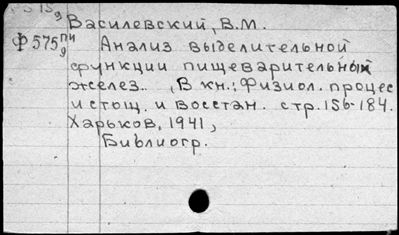 Василевский, В.М.
Ф575пи9 Анализ выделительной
функции пищеварительных
желез.. , В кн.: Физиол. процес
истощ. и восстан. стр. 156-184.
Харьков, 1941,
Библиогр.